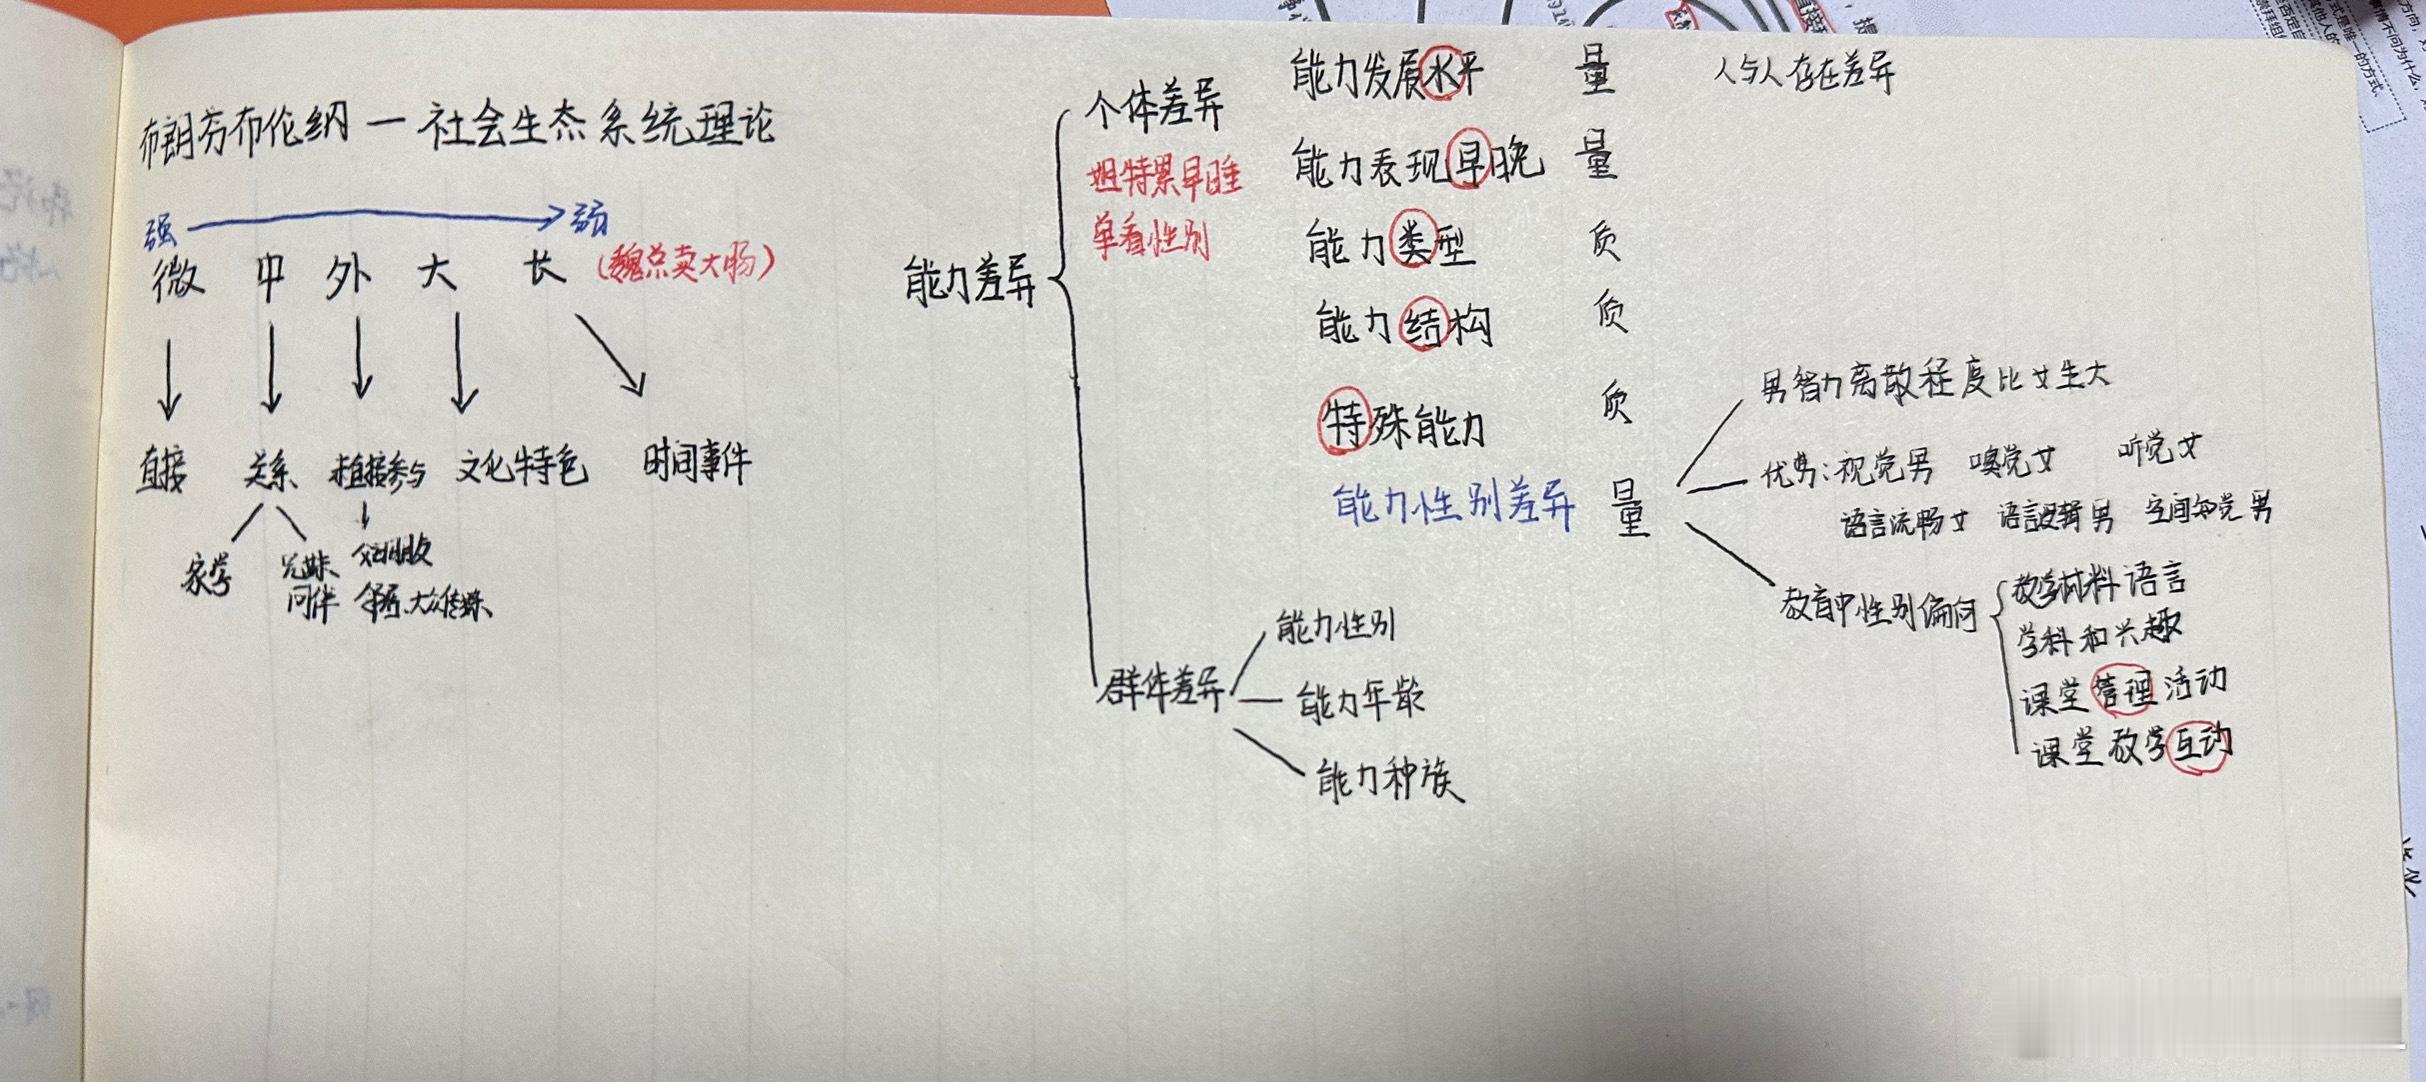 布朗芬布伦纳一社会生态系统理论
强 弱
微 中 外 大 长 (魏总卖大肠)
直接 关系 未直接参与 文化特色 时间事件
家学 兄妹、
同伴 大众传媒、
能力差异
个体差异
姐特累早睡
单看性别
能力发展水平 量 人与人存在差异
能力表现早晚 量
能力类型 质
能力结构 质
特殊能力 质
能力性别差异 量
男智力离散程度比女生大
优势:视觉男 嗅觉女 听觉女
语言流畅女 语言逻辑男 空间知觉男
教育中性别偏向
教学材料语言
学科和兴趣
课堂管理活动
课堂教学互动
群体差异
能力性别
能力年龄
能力种族